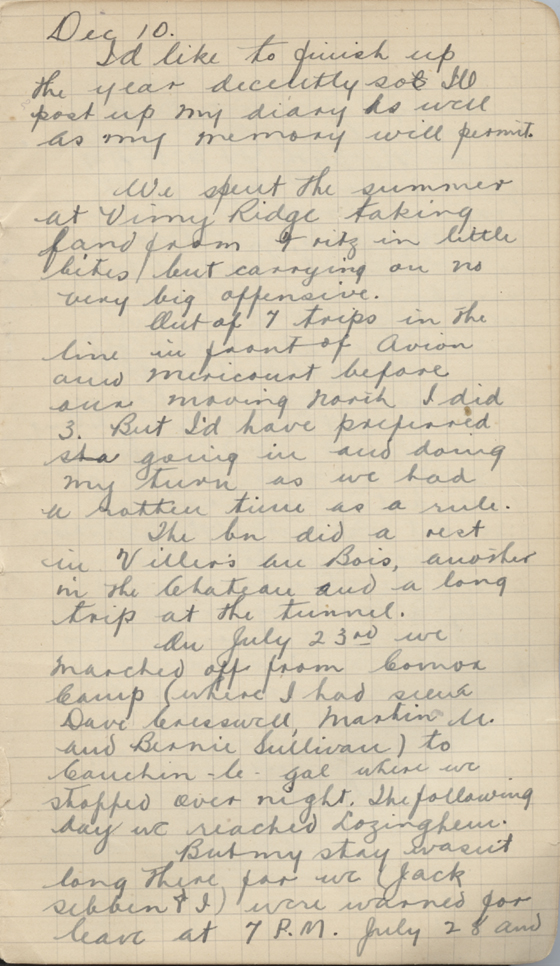 Dec 10.
I'd like to finish up
the year decently so I'll
post up my diary as well
as my memory will permit.
We spent the summer
at Vimy Ridge taking
land from Fritz in little
bites, but carrying on no
very big offensive.
Out of 7 trips in the
line in front of Avion
and Mericourt before
our moving north I did
3. But I'd have preferred
going in and doing
my turn as we had
a rotten time as a rule.
The bn did a rest
in Villers au Bois, another
in the Chateau and a long
trip at the tunnel.
On July 23rd we
marched off from Comox
Camp (where I had seen
Dave Cresswell, Martin M.
and Bernie Sullivan) to
Cauchin-le-gal where we
stopped over night. The following
day we reached Lozinghem.
But my stay wasn't
long there for we (Jack
Sibben & I) were warned for
leave at 7 P.M. July 28 and